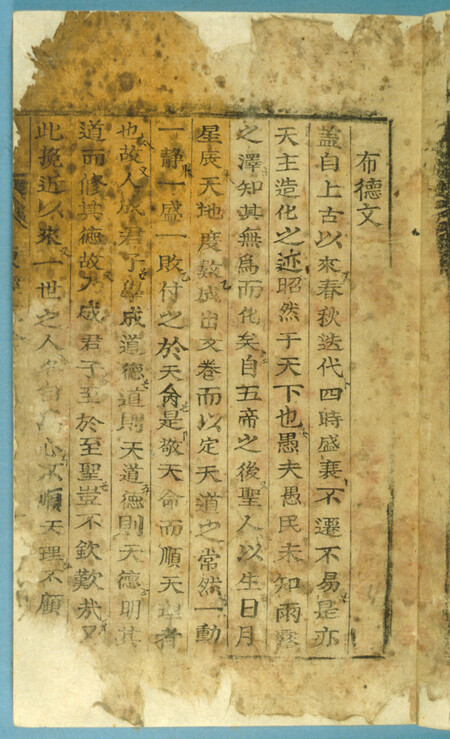 布德文
盖自上古以來春秋迭代四時盛衰不遷不易是亦
天主造化之迹昭然于天下也愚夫愚民未知雨露
之澤知其無爲而化矣自五帝之後聖人以生日月
星辰天地度數成出文卷而以定天道之常然一動
一静一盛一敗付之於天命是敬天命而順天理者
也故人成君子學成道德道則天道德則天德明其
道而修其德故乃成君子至於至聖豈不欽歎哉又
此挽近以來一世之人各自心不順天理不顧